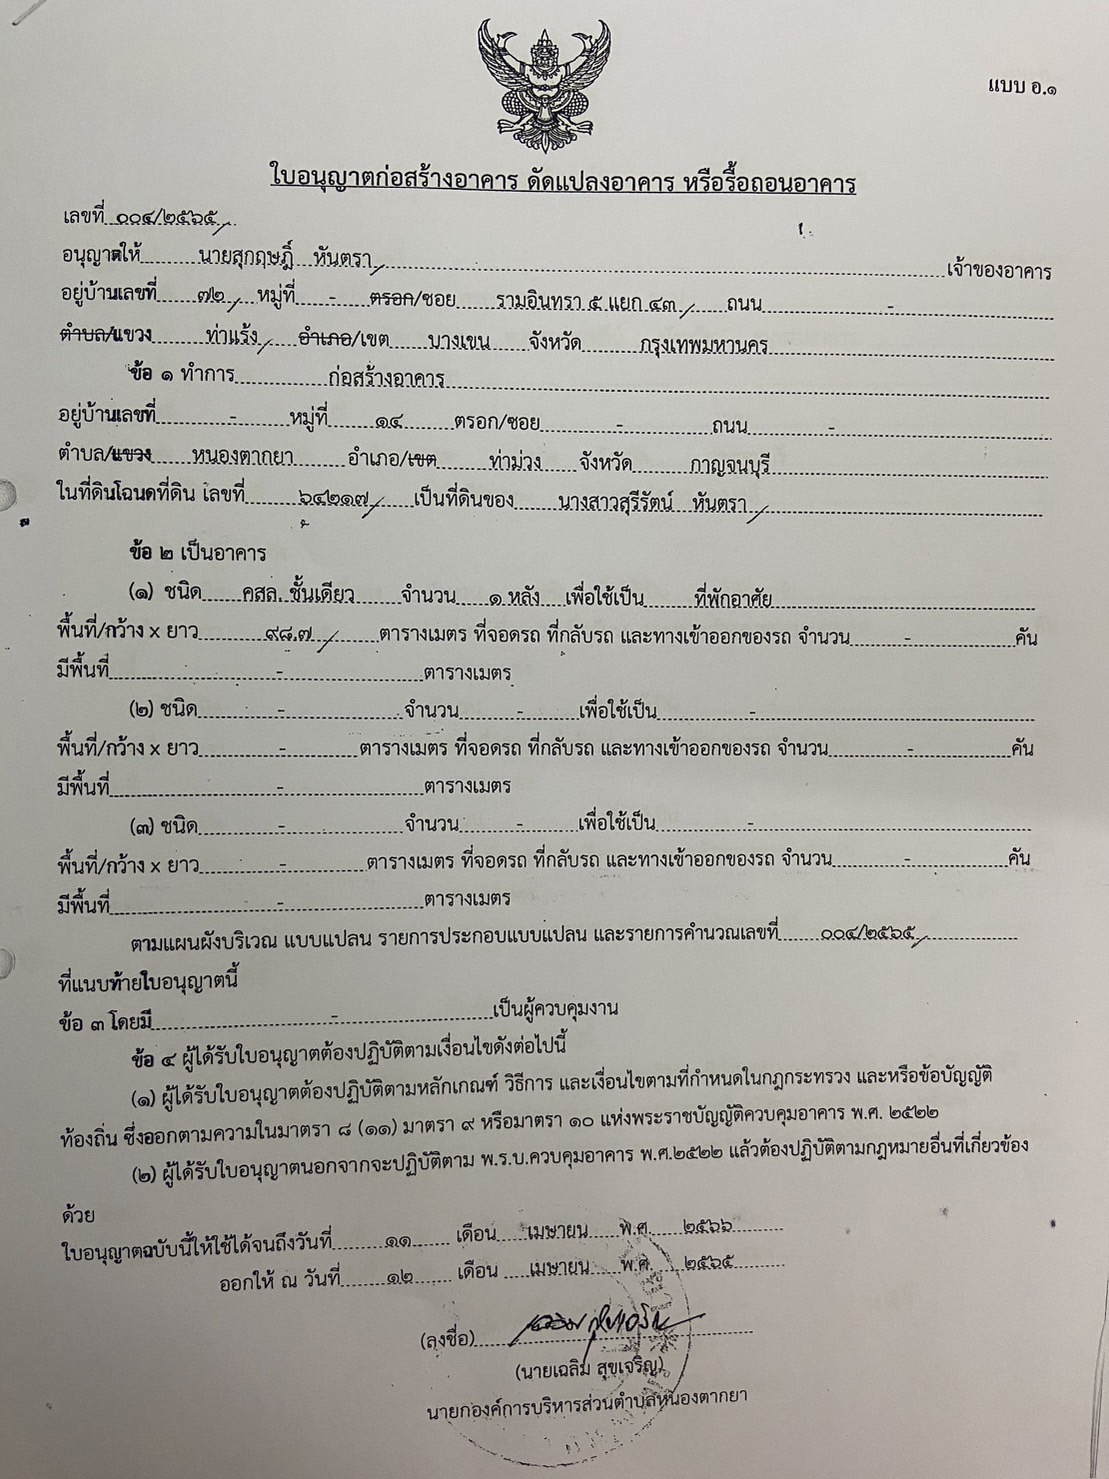 แบบ อ.๑
ใบอนุญาตก่อสร้างอาคาร ดัดแปลงอาคาร หรือรื้อถอนอาคาร
เลขที่ ๐๐๔/๒๕๖๕
อนุญาตให้ นายสุกฤษฎิ์ หันตรา เจ้าของอาคาร
อยู่บ้านเลขที่ ๗๒ หมู่ที่ - ตรอก/ซอย รามอินทรา ๕ แยก ๔๓ ถนน -
ตำบล/แขวง ท่าแร้ง อำเภอ/เขต บางเขน จังหวัด กรุงเทพมหานคร
ข้อ ๑ ทำการ ก่อสร้างอาคาร
อยู่บ้านเลขที่ - หมู่ที่ ๑๔ ตรอก/ซอย - ถนน -
ตำบล/แขวง หนองตากยา อำเภอ/เขต ท่าม่วง จังหวัด กาญจนบุรี
ในที่ดินโฉนดที่ดิน เลขที่ ๖๔๒๑๗ เป็นที่ดินของ นางสาวสุรีรัตน์ หันตรา
ข้อ ๒ เป็นอาคาร
(๑) ชนิด คสล. ชั้นเดียว จำนวน ๑ หลัง เพื่อใช้เป็น ที่พักอาศัย
พื้นที่/กว้าง x ยาว ๙๘.๗ ตารางเมตร ที่จอดรถ ที่กลับรถ และทางเข้าออกของรถ จำนวน - คัน
มีพื้นที่ - ตารางเมตร
(๒) ชนิด - จำนวน - เพื่อใช้เป็น -
พื้นที่/กว้าง x ยาว - ตารางเมตร ที่จอดรถ ที่กลับรถ และทางเข้าออกของรถ จำนวน - คัน
มีพื้นที่ - ตารางเมตร
(๓) ชนิด - จำนวน - เพื่อใช้เป็น -
พื้นที่/กว้าง x ยาว - ตารางเมตร ที่จอดรถ ที่กลับรถ และทางเข้าออกของรถ จำนวน - คัน
มีพื้นที่ - ตารางเมตร
ตามแผนผังบริเวณ แบบแปลน รายการประกอบแบบแปลน และรายการคำนวณเลขที่ ๐๐๔/๒๕๖๕
ที่แนบท้ายใบอนุญาตนี้
ข้อ ๓ โดยมี - เป็นผู้ควบคุมงาน
ข้อ ๔ ผู้ได้รับใบอนุญาตต้องปฏิบัติตามเงื่อนไขดังต่อไปนี้
(๑) ผู้ได้รับใบอนุญาตต้องปฏิบัติตามหลักเกณฑ์ วิธีการ และเงื่อนไขตามที่กำหนดในกฎกระทรวง และหรือข้อบัญญัติ
ท้องถิ่น ซึ่งออกตามความในมาตรา ๘ (๑๑) มาตรา ๙ หรือมาตรา ๑๐ แห่งพระราชบัญญัติควบคุมอาคาร พ.ศ. ๒๕๒๒
(๒) ผู้ได้รับใบอนุญาตนอกจากจะปฏิบัติตาม พ.ร.บ.ควบคุมอาคาร พ.ศ.๒๕๒๒ แล้วต้องปฏิบัติตามกฎหมายอื่นที่เกี่ยวข้อง
ด้วย
ใบอนุญาตฉบับนี้ให้ใช้ได้จนถึงวันที่ ๑๑ เดือน เมษายน พ.ศ. ๒๕๖๖
ออกให้ ณ วันที่ ๑๒ เดือน เมษายน พ.ศ. ๒๕๖๕
(ลงชื่อ)
(นายเฉลิม สุขเจริญ)
นายกองค์การบริหารส่วนตำบลหนองตากยา